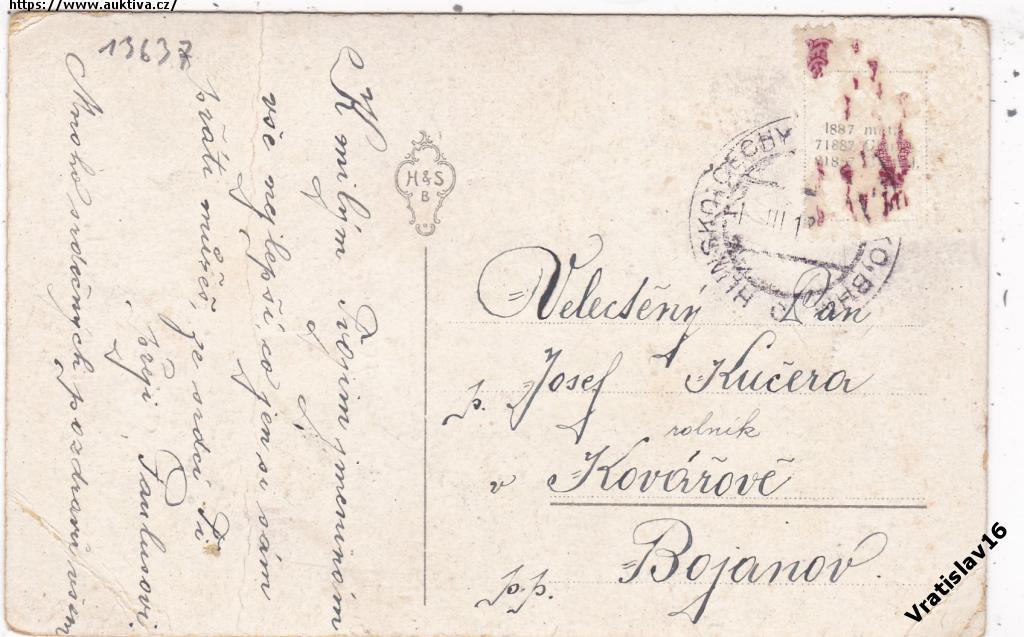 https://www.auktiva.cz/
13637
K milým Tvojim jmeninám
vše nejlepší, co jen si sám
přáti můžeš, ze srdce Ti
přejí Paulusovi
Mnoho srdečných pozdravů všem
H&S
B
HLINSKO ČECHY
III
1887
71887
Velectěný Pan
p. Josef Kučera
rolník
v Kovářově
p.p. Bojanov.
Vratislav16